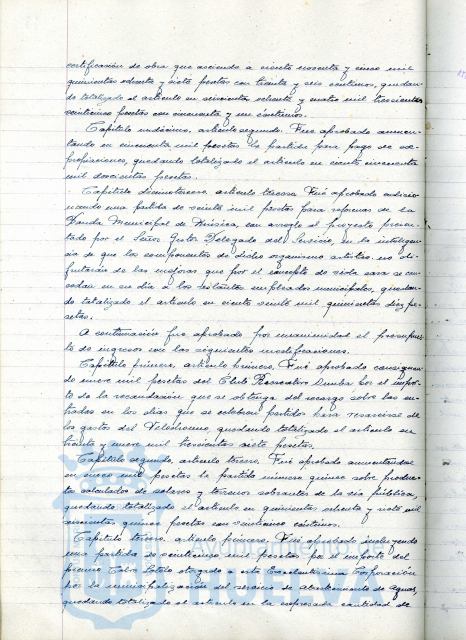 certificación de obra que asciende a ciento noventa y cinco mil
quinientas ochenta y siete pesetas con treinta y seis centimos, quedan-
do totalizado el artículo en seiscientas ochenta y cuatro mil trescientas
veinticinco pesetas con cincuenta y un centimos.
Capitulo undécimo, artículo segundo. Fué aprobado aumen-
tando en cincuenta mil pesetas la partida para pago de ex-
propiaciones, quedando totalizado el artículo en ciento cincuenta
mil doscientas pesetas.
Capitulo decimotercero, artículo tercero. Fué aprobado adicio-
nando una partida de veinte mil pesetas para reformas de la
Banda Municipal de Música, con arreglo al proyecto presen-
tado por el Señor Gestor Delegado del Servicio, en la inteligen-
cia de que los componentes de dicho organismo artístico no dis-
frutarán de las mejoras que por el concepto de vida cara se con-
cedan en su dia a los restantes empleados municipales, quedan-
do totalizado el artículo en ciento veinte mil quinientas diez pe-
setas.
A continuación fue aprobado por unanimidad el presupues-
to de ingresos con las siguientes modificaciones.
Capitulo primero, artículo primero. Fué aprobado consignan-
do nueve mil pesetas del Club Recreativo Onuba por el impor-
te de la recaudación que se obtenga del recargo sobre las en-
tradas en los dias que se celebren partidos para resarcirse de
los gastos del Velódromo, quedando totalizado el artículo en
treinta y nueve mil trescientas siete pesetas.
Capitulo segundo, artículo tercero. Fué aprobado aumentándose
en nueve mil pesetas la partida número quince sobre produc-
tos calculados de solares y terrenos sobrantes de la vía pública,
quedando totalizado el artículo en quinientas ochenta y siete mil
seiscientas quince pesetas con veinticinco céntimos.
Capitulo tercero, artículo primero. Fué aprobado incluyendo
una partida de veinticinco mil pesetas por el importe del
premio Calvo Sotelo otorgado a esta Excelentísima Corporación
por la municipalización del servicio de abastecimiento de aguas,
quedando totalizado el artículo en la expresada cantidad de